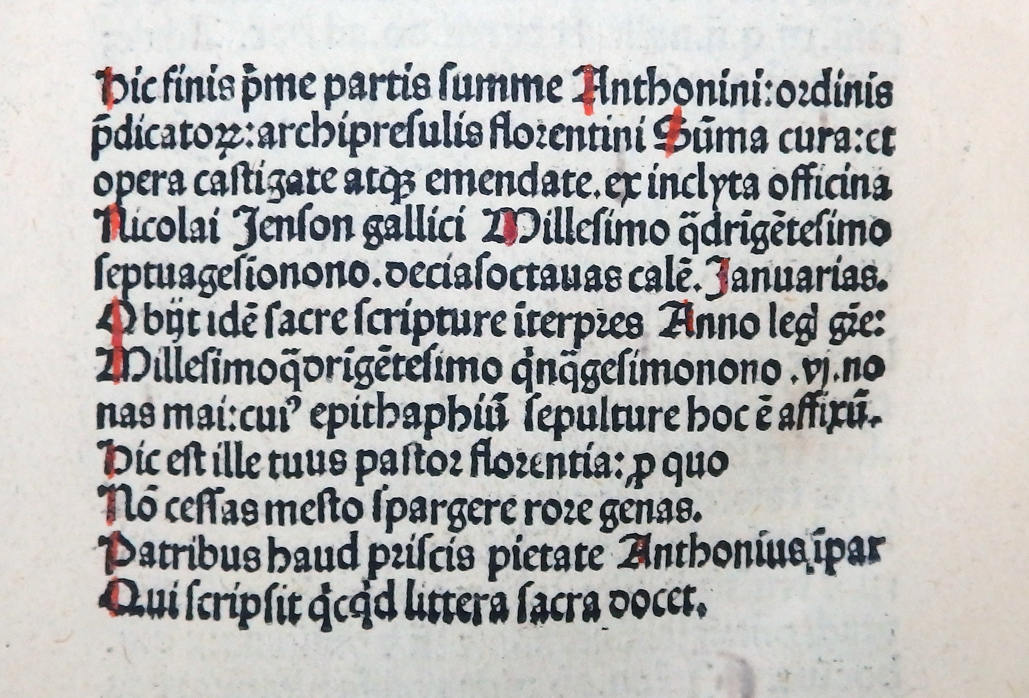 Hic finis p̄me partis ſumme Anthonini: ordinis
p̄dicatoꝝ: archipreſulis florentini Sūma cura: et
opera caſtigate atqꝫ emendate. ex inclyta officina
Nicolai Jenſon gallici Milleſimo q̄drigēteſimo
ſeptuageſionono. deciaſoctauas calē. Januarias.
Obijt idē ſacre ſcripture īterpres Anno leg gr̄e:
Milleſimoq̄drigēteſimo qͥnq̄geſimonono .vj. no
nas mai: cuiꝰ epithaphiū ſepulture hoc ē affixū.
Hic eſt ille tuus paſtor florentia: ꝓ quo
Nō ceſſas meſto ſpargere rore genas.
Patribus haud priſcis pietate Anthonius īpar
Qui ſcripſit qͥcqͥd littera ſacra docet.